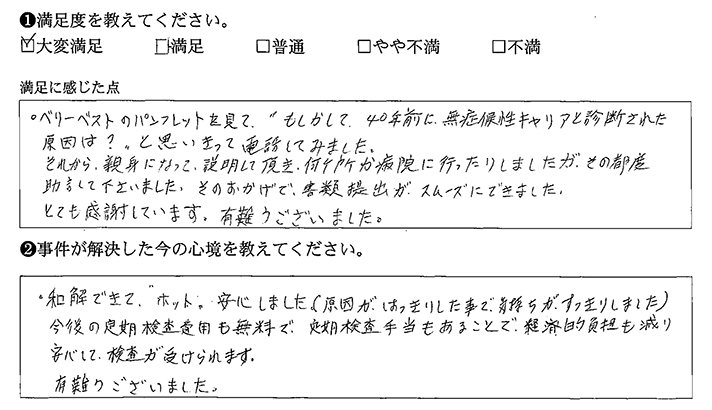 ❶満足度を教えてください。
☑大変満足 □満足 □普通 □やや不満 □不満
満足に感じた点
。ベリーベストのパンフレットを見て、"もしかして、40年前に、無症候性キャリアと診断された
原因は？"と思いきって電話してみました。
それから、親身になって、説明して頂き、何ケ所か病院に行ったりしましたが、その都度
助言して下さいました。そのおかげで、書類提出が、スムーズにできました。
とても感謝しています。有難うございました。
❷事件が解決した今の心境を教えてください。
。和解できて、"ホット"。安心しました。(原因が、はっきりした事で、気持ちが、すっきりしました)
今後の定期検査費用も無料で、定期検査手当もあることで、経済的負担も減り
安心して、検査が受けられます。
有難うございました。